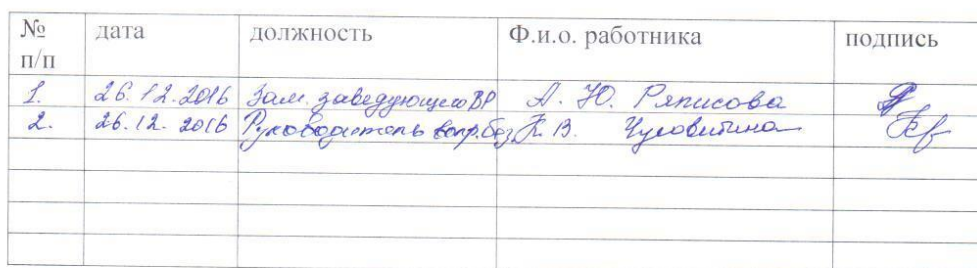 № п/п дата должность Ф.и.о. работника подпись
1. 26.12.2016 Зам. заведующего ВР А. Ю. Ряписова
2. 26.12.2016 Руководитель вопр. без К. В. Чусовитина